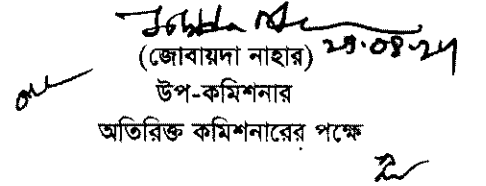 (জোবায়দা নাহার)
উপ-কমিশনার
অতিরিক্ত কমিশনারের পক্ষে